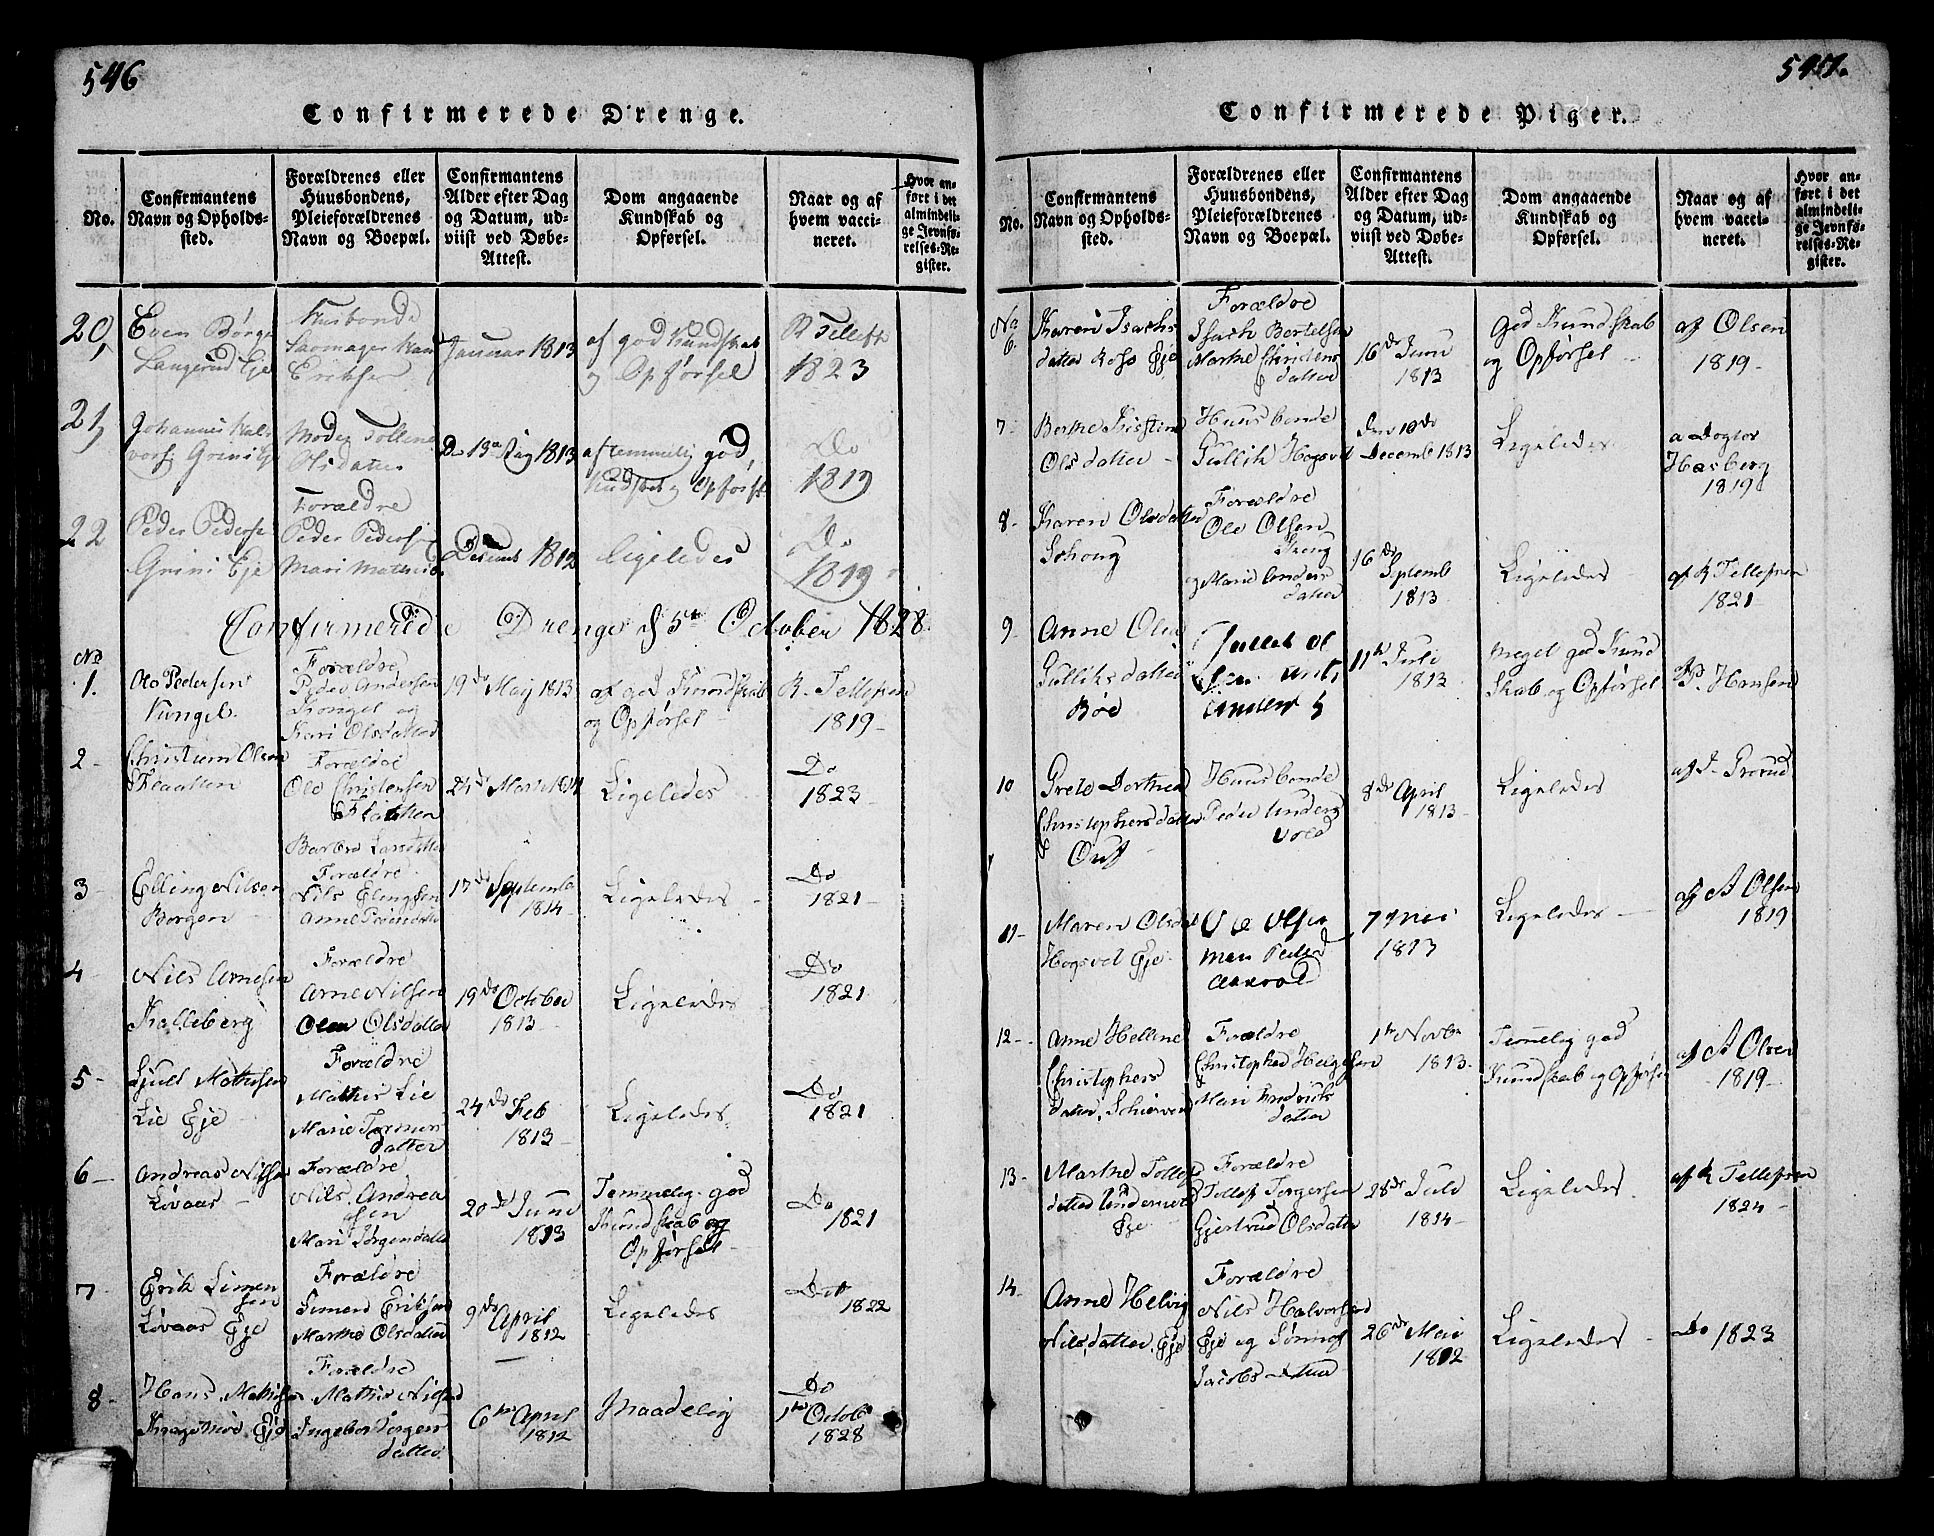 546
Confirmerede Drenge.
No.
Confirmantens
Navn og Opholds-
sted.
Forældrenes eller
Huusbondens,
Pleieforældrenes
Navn og Boepæl.
Confirmantens
Alder efter Dag
og Datum, ud-
viist ved Døbe-
Attest.
Dom angaaende
Kundskab og
Opførsel.
Naar og af
hvem vacci-
neret.
Hvor an-
ført i det
almindeli-
ge Jevnfø-
relses-Re-
gister.
20,
Even Børge
Langerud Eje
Husbonde
Eriksen
Januar 1813
af god Kundskab
og Opførsel
R Tellefs
1823
21,
Johannes Hal
vors Grini Eje
Moder Tolline
Olsdatter
D 13 Aug 1813
af temmelig god,
Kundskab og Opførs
Do
1819
22
Peder Peders
Grini Eje
Forældre
Peder Peders
Mari Mathis
Decemb 1812
ligeledes
Do
1819
Confirmerede Drenge d 5te October 1828.
No
1.
Ole Pedersen
Kongel.
Forældre
Peder Andersen
Kongel og
Kari Olsdatter
19de Maij 1813
af god Kundskab
og Opførsel
R. Tellefsen
1819-
2-
Christian Olsen
Flaatten
Forældre
Ole Christensen
Flaatten
Barbro Larsdatter
24de Marts 1814
Ligeledes
Do
1823
3
Elling Nilsen
Borgen
Forældre
Nils Elingsen
Anne
17de Septembr
1814
Ligeledes
Do
1821
4
Nils Arnesen
Kalleberg
Forældre
Arne Nilsen
Olea Olsdatter
19de October
1813
Ligeledes
Do
1821
5-
Gjull Mathisen
Lie Eje
Forældre
Mathis Lie
Marie Tormos
datter
24de Feb
1813-
Ligeledes
Do
1821
6-
Andreas Nilsen
Løvaas
Forældre
Nils Andrea
sen
Mari Jørgensdatter
20de Juni
1813
Temmelig god
Kundskab og
Opførsel
Do
1821
7-
Erik Simen
sen
Løvaas Eje
Forældre
Simen Eriksen
Marthe Olsdatter
9de April
1812
Ligeledes
Do
1822
8-
Hans Mathisen
Kragsmoe Eje
Forældre
Mathis Nilsen
Ingebor Jorgens
datter.
6te April
1812
Maadelig
Do
1te Octob
1828
547.
Confirmerede Piger.
No.
Confirmantens
Navn og Opholds-
sted.
Forældrenes eller
Huusbondens,
Pleieforældrenes
Navn og Boepæl.
Confirmantens
Alder efter Dag
og Datum, ud-
viist ved Døbe-
Attest.
Dom angaaende
Kundskab og
Opførsel.
Naar og af
hvem vacci-
neret.
Hvor an-
ført i det
almindeli-
ge Jevnfø-
relses-Re-
gister.
No
6.
Karen Isachs
datter Foss Eje
Forældre
Isach Bertelsen
Marthe Christens
datter
16de Juni
1813
God Kundskab
og Opførsel
af Olsen
1819-
7-
Berthe Kirstine
Olsdatter
Huusbonde
Gullik Hogsvel
den 10de
Decemb 1813
Ligeledes
a Dogtor
Hasberg
1819
8-
Karen Olsdatter
Forældre
Ole Olsen
og Marie Anders
datter
16de
Septemb
1813
Ligeledes
af R Tellefsen
1821-
9-
Anne Olia
Gulliksdatter
Boe
11te Juli
1813
Meget god Kund
skab og Opførsel
af P. Hansen
10
Grete Dorthea
Christophersdatter
Huusbonde
Peder Anders
8de April
1813-
Ligeledes
af
11-
Maren Olsdat
Hogsvel Eje
Ole Olsen
Mari Peders
7 Mei
1813
Ligeledes
af A Olsen
1819
12-
Anne Helline
Christophers
datter, Schierven
Forældre
Christopher Helgesen
Mari Fredriks
datter
1te Novbr
1813-
Temelig god
Kundskab og Opførsel
af A Olsen
1819-
13-
Marthe Tollefs
datter Eje
Forældre
Tollef Torgersen
Gjertrud Olsdatter
28de Juli
1814-
Ligeledes
af R Tellefsen
1824-
14-
Anne Helvig
Nilsdatter Eje
Forældre
Nils Halvorsen
Eje og
Jacobsdatter
26de Mai
1812
Ligeledes
Do 1823